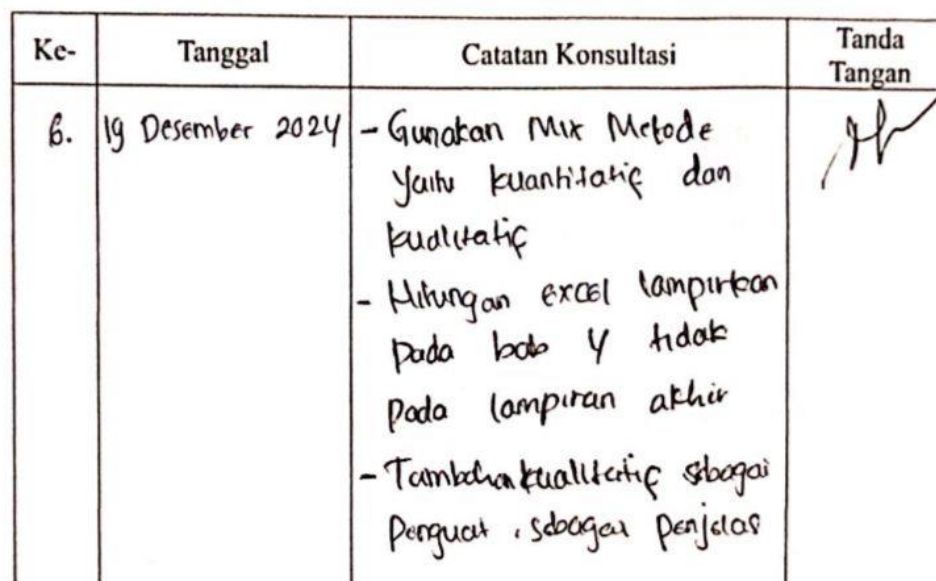 Ke- Tanggal Catatan Konsultasi Tanda
Tangan
6. 19 Desember 2024 - Gunakan Mix Metode
Yaitu kuantitatif dan
kualitatif
- Hitungan excel lampirkan
pada bab 4 tidak
pada lampiran akhir
- Tambahan kualitatif sebagai
Penguat, sebagai penjelas